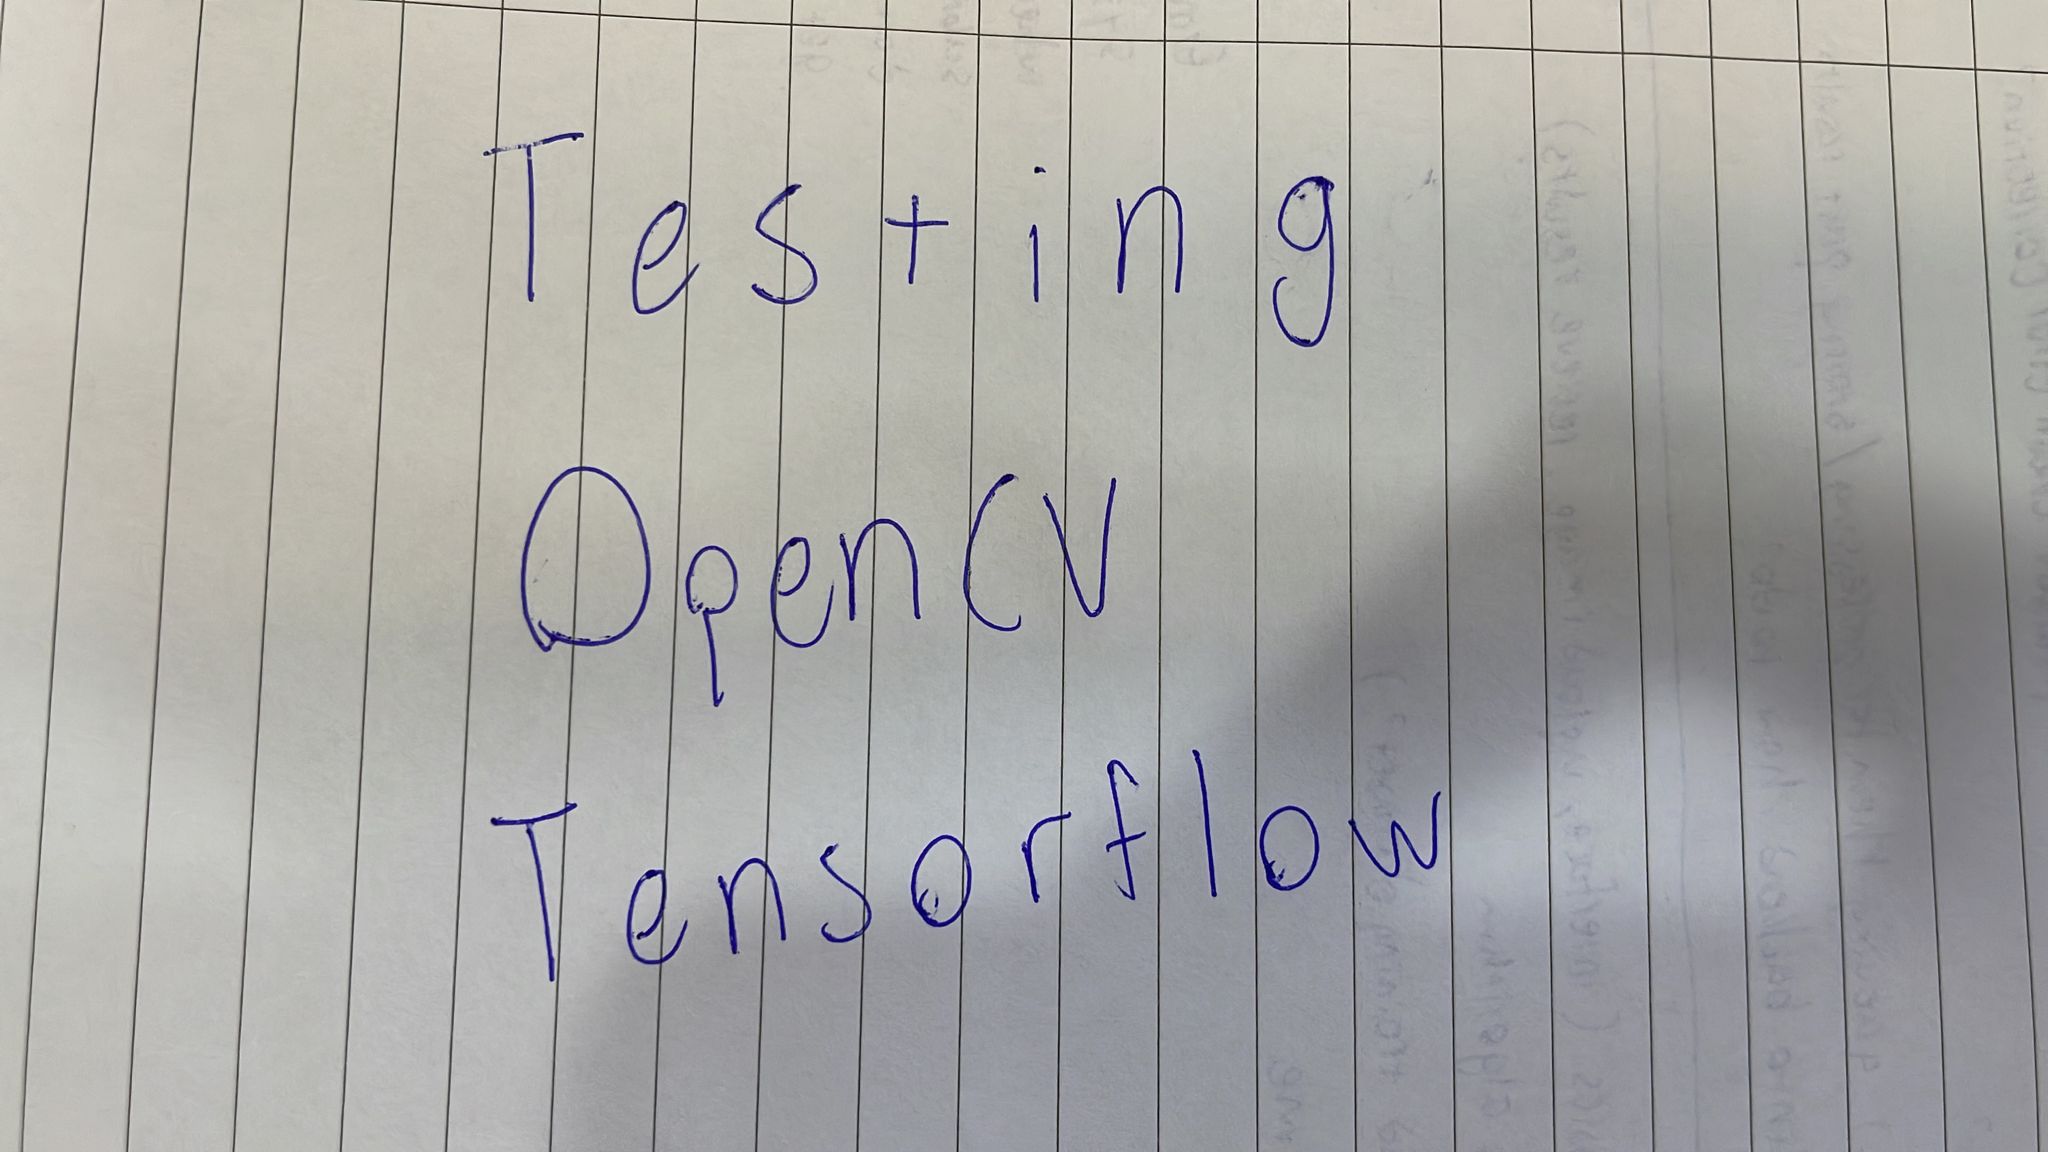 Testing
OpenCV
Tensorflow